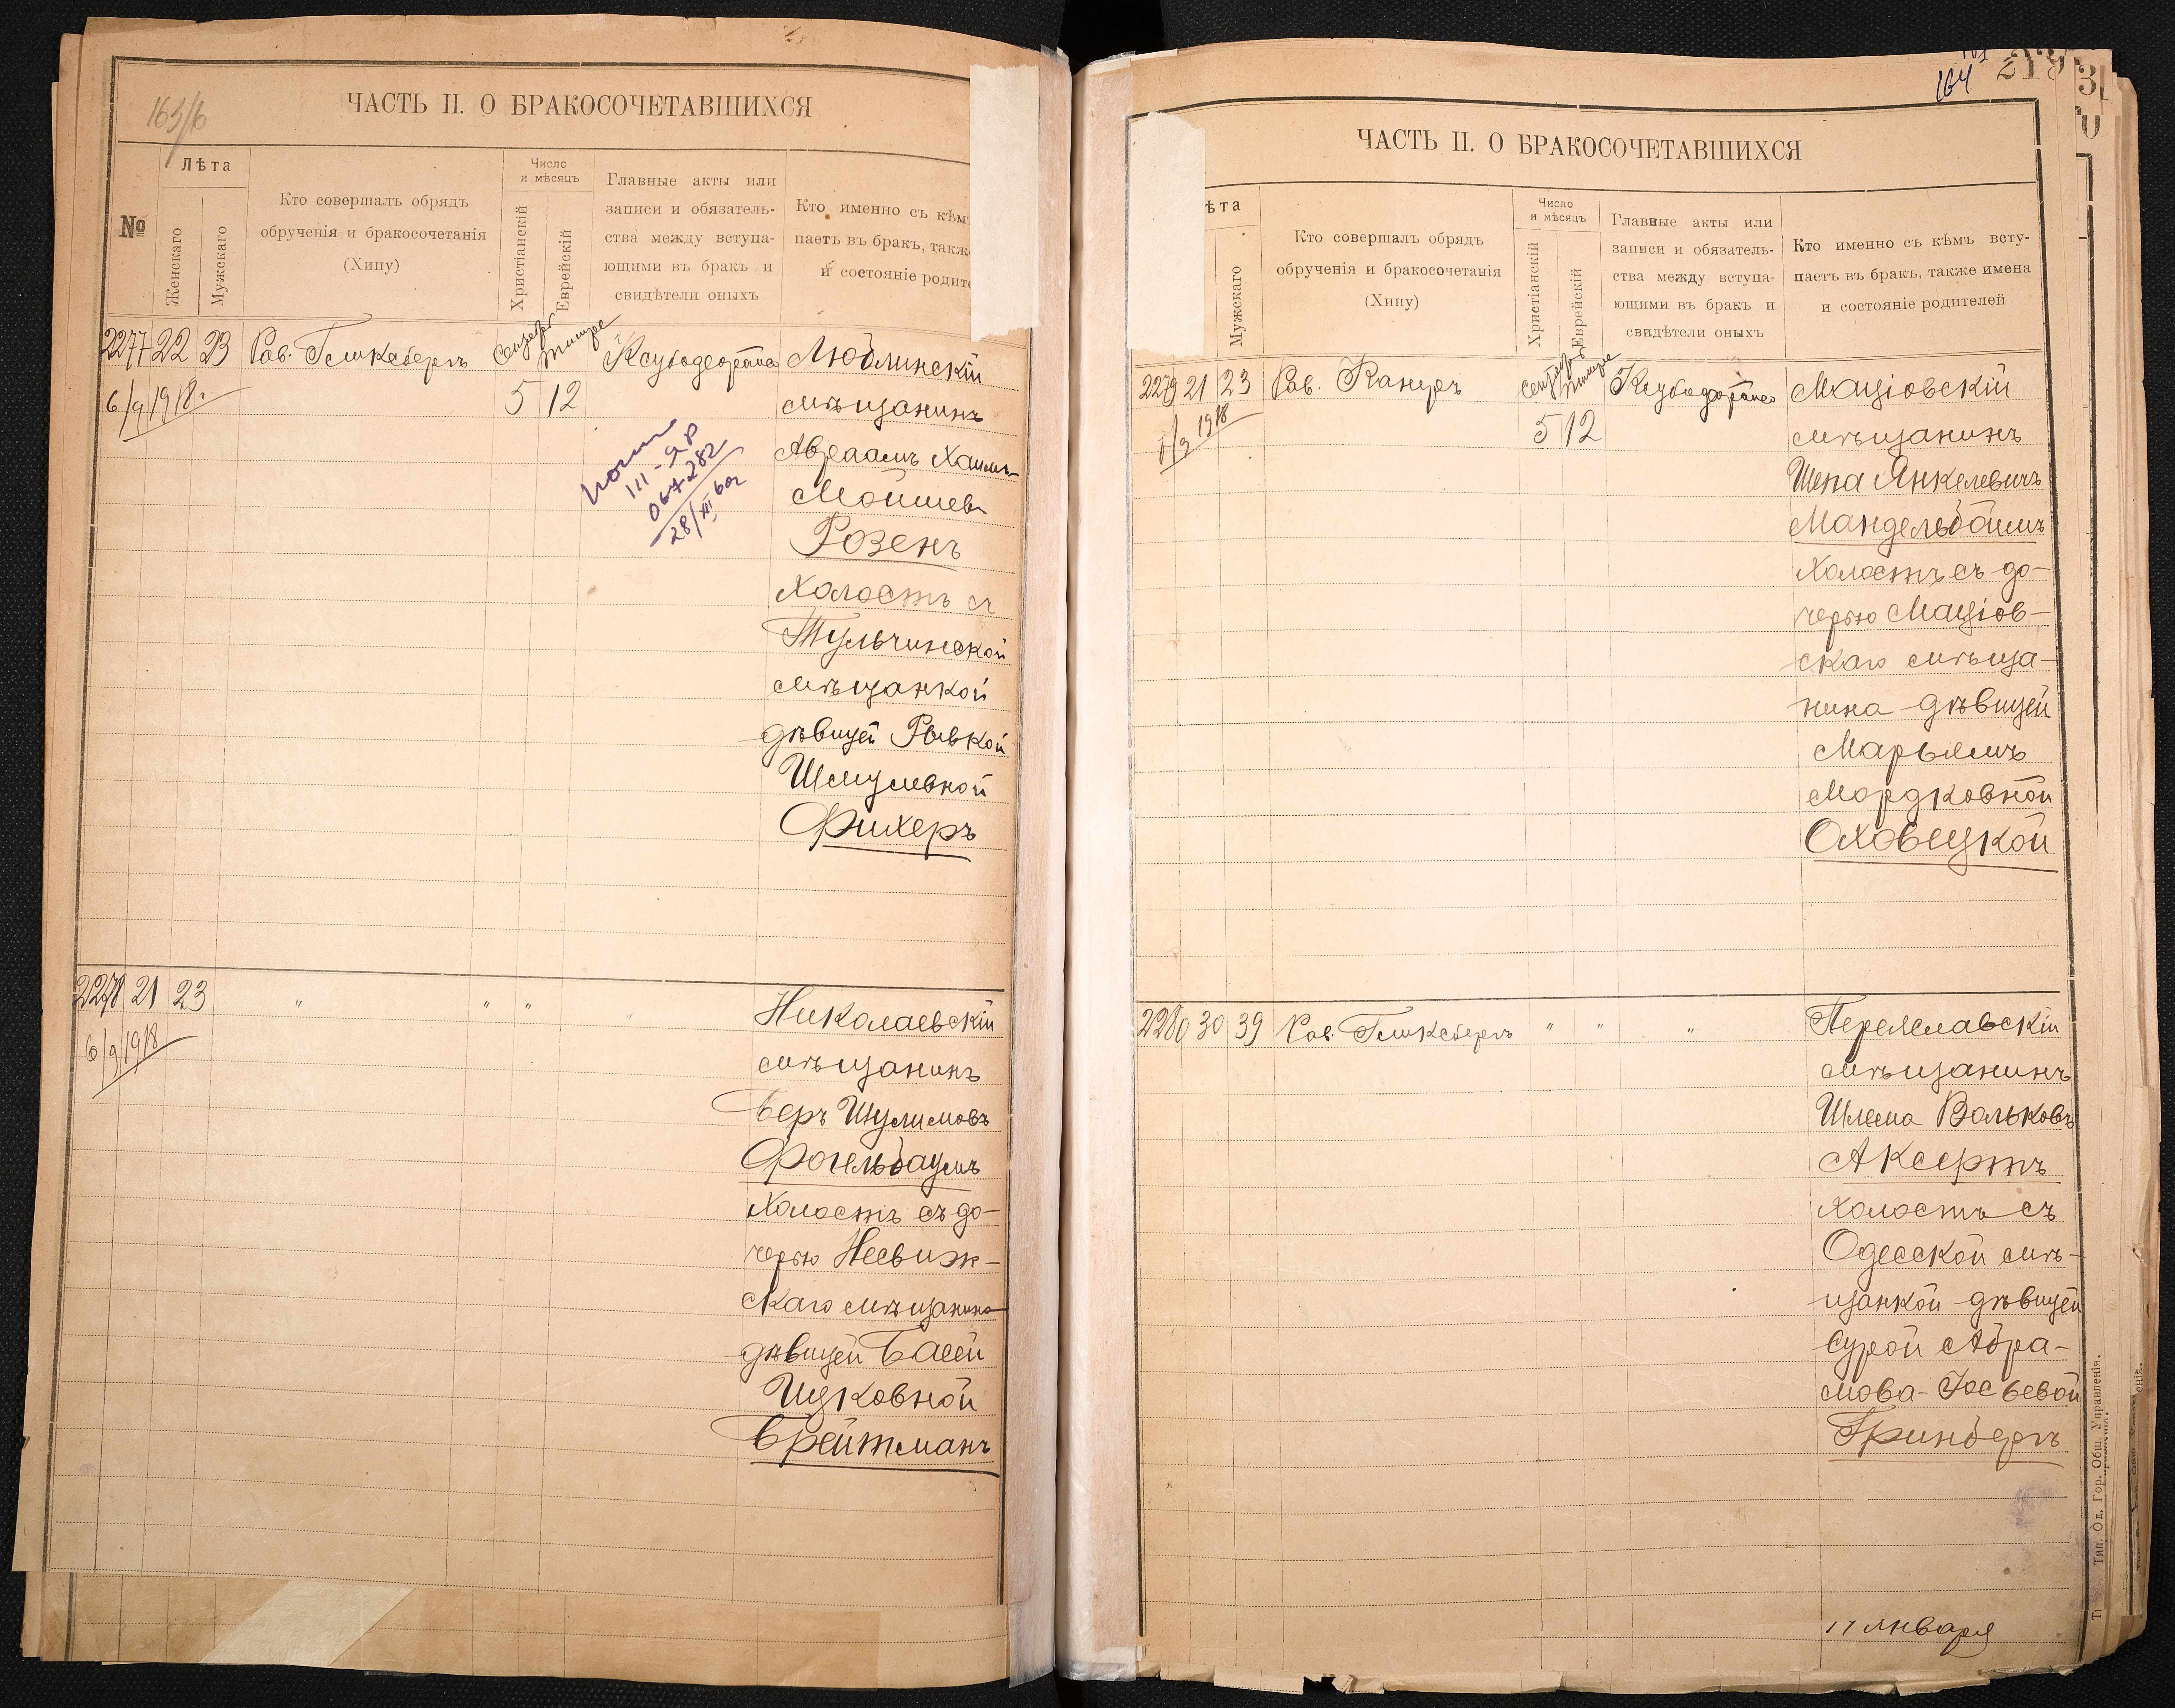 163/б
ЧАСТЬ II. О БРАКОСОЧЕТАВШИХСЯ
№
Лѣта
Женскаго
Мужскаго
Кто совершалъ обрядъ
обрученія и бракосочетанія
(Хипу)
Число
и мѣсяцъ
Христіанскій
Еврейскій
Главные акты или
записи и обязатель-
ства между вступа-
ющими въ бракъ и
свидѣтели оныхъ
Кто именно съ кѣм
паетъ въ бракъ, такж
и состояніе родите
2277 22 23 Рав.
6/9 1918 г.
5 12
III-ЯР
067282
28/XII 60г
Люблинскій
мѣщанинъ
Авраамъ Хаимъ-
Мошшев
Розенъ
холостъ съ
Тульчинской
мѣщанкой
дѣвицей Рывкой
Шмулевной
Фихеръ
2278 21 23 " " " "
6/9 1918
Николаевскій
мѣщанинъ
Беръ Шулимовъ
Фогельбаумъ
холостъ съ до-
черью Несвиж-
скаго мѣщанина
дѣвицей Басей
Ицковной
Брейтманъ
164
ЧАСТЬ II. О БРАКОСОЧЕТАВШИХСЯ
ѣта
Мужскаго
Кто совершалъ обрядъ
обрученія и бракосочетанія
(Хипу)
Число
и мѣсяцъ
Христіанскій
Еврейскій
Главные акты или
записи и обязатель-
ства между вступа-
ющими въ бракъ и
свидѣтели оныхъ
Кто именно съ кѣмъ всту-
паетъ въ бракъ, также имена
и состояніе родителей
2279 21 23 Рав.
1918
5 12
Маціовскій
мѣщанинъ
Шепа Янкелевичъ
Мандельбоймъ
холостъ съ до-
черью Маціов-
скаго мѣща-
нина дѣвицей
Марьямъ
Мордковной
Оховецкой
2280 30 39 Рав. " " "
Переяславскій
мѣщанинъ
Шлема Вольковъ
Аксертъ
холостъ съ
Одесской мѣ-
щанкой дѣвицей
Сурой Абра-
мова-Іосьевой
Гринбергъ
17 января
Тип. Од. Гор. Общ. Управленія.